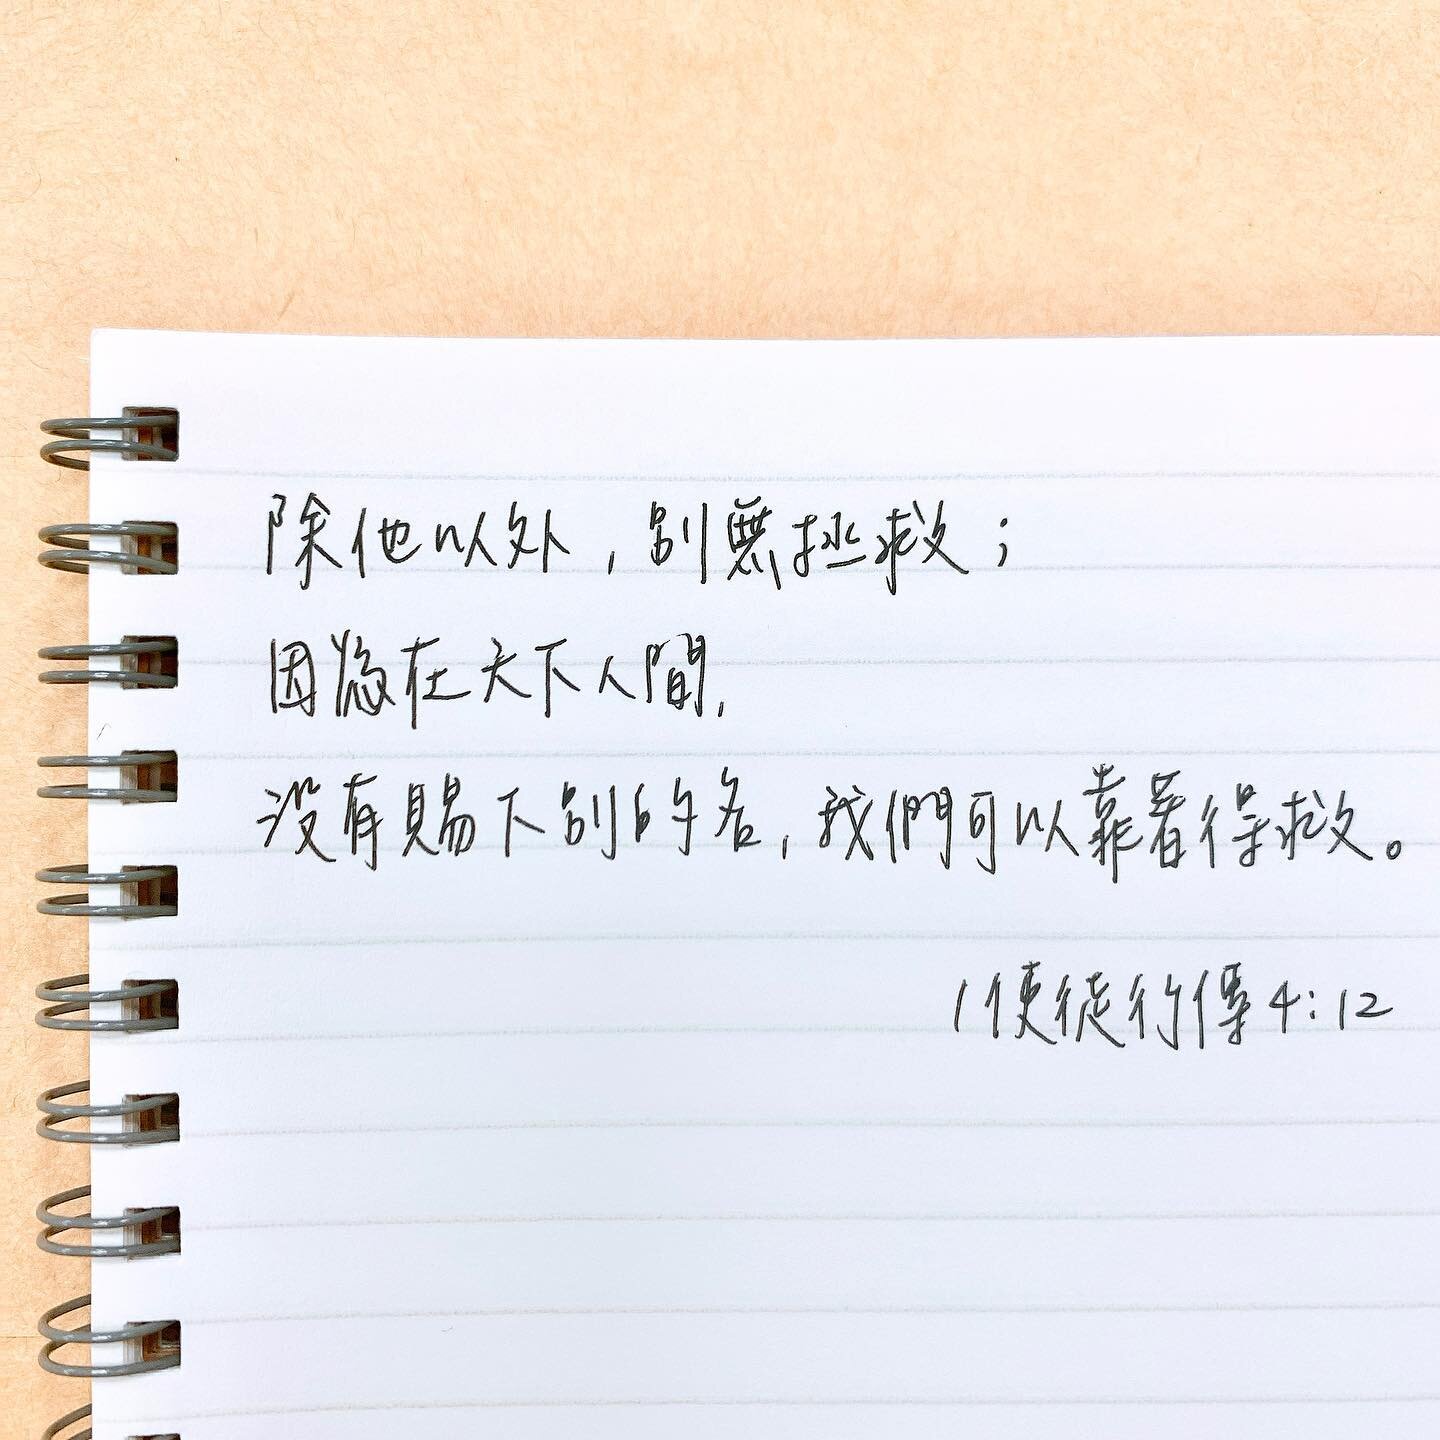 除他以外，別無拯救；
因為在天下人間，
沒有賜下別的名，我們可以靠着得救。
/使徒行傳4:12